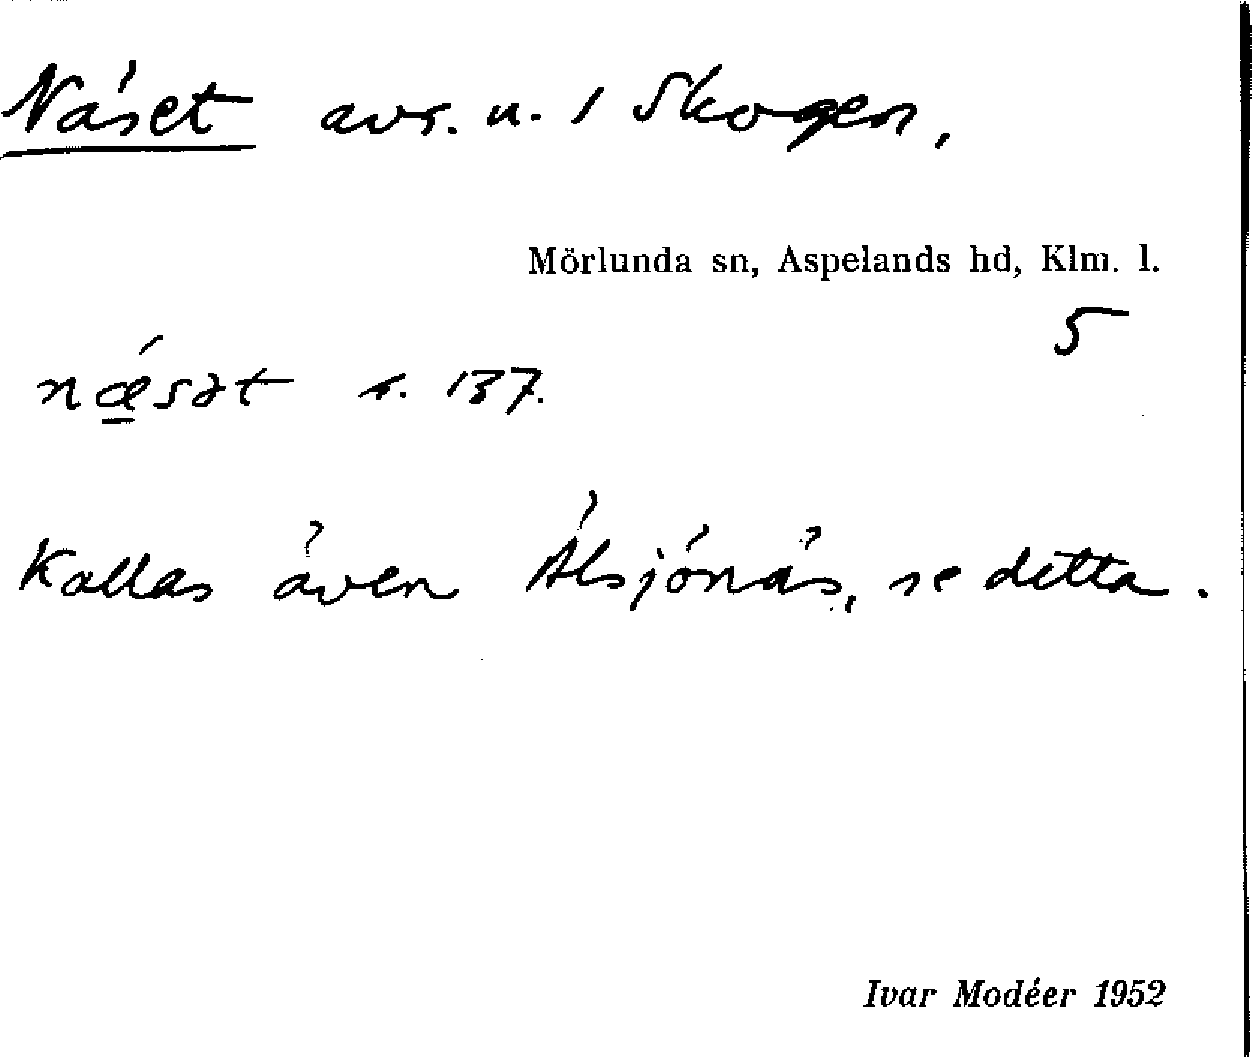 Näset avs. u. 1 Skogen,
Mörlunda sn, Aspelands hd, Klm. l.
5
nǽ̲sət s. 137.
Kallas även Älsjönäs, se detta.
Ivar Modéer 1952